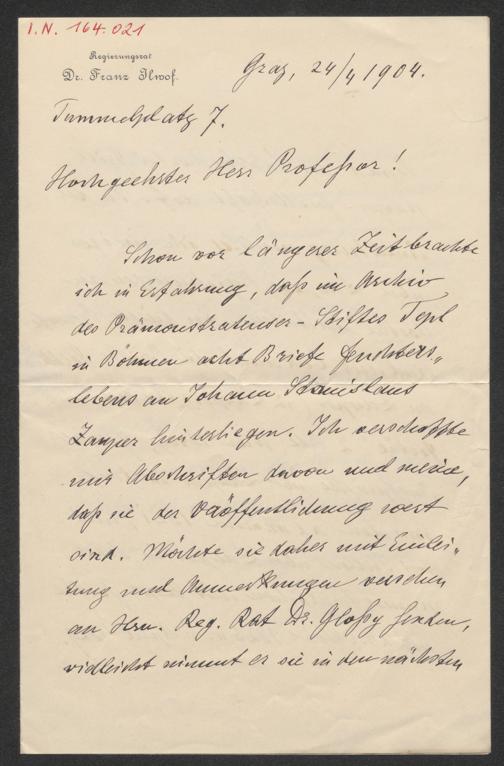 I.N. 164.021
Regierungsrat
Dr. Franz Ilwof.
Graz, 24/4 1904.
Tummelplatz 7.
Hochgeehrter Herr Professor!
Schon vor längerer Zeit brachte
ich in Erfahrung, daß im Archiv
des Prämonstratenser-Stiftes Tepl
in Böhmen acht Briefe Feuchters„
lebens an Johann Stanislaus
Zauper hinterliegen. Ich verschaffte
mir Abschriften davon und meine,
daß sie der Veröffentlichung wert
sind. Möchte sie daher mit Einlei„
tung und Anmerkungen versehen
an Hrn. Reg. Rat Dr. Gloßy senden,
vielleicht nimmt er sie in den nächsten